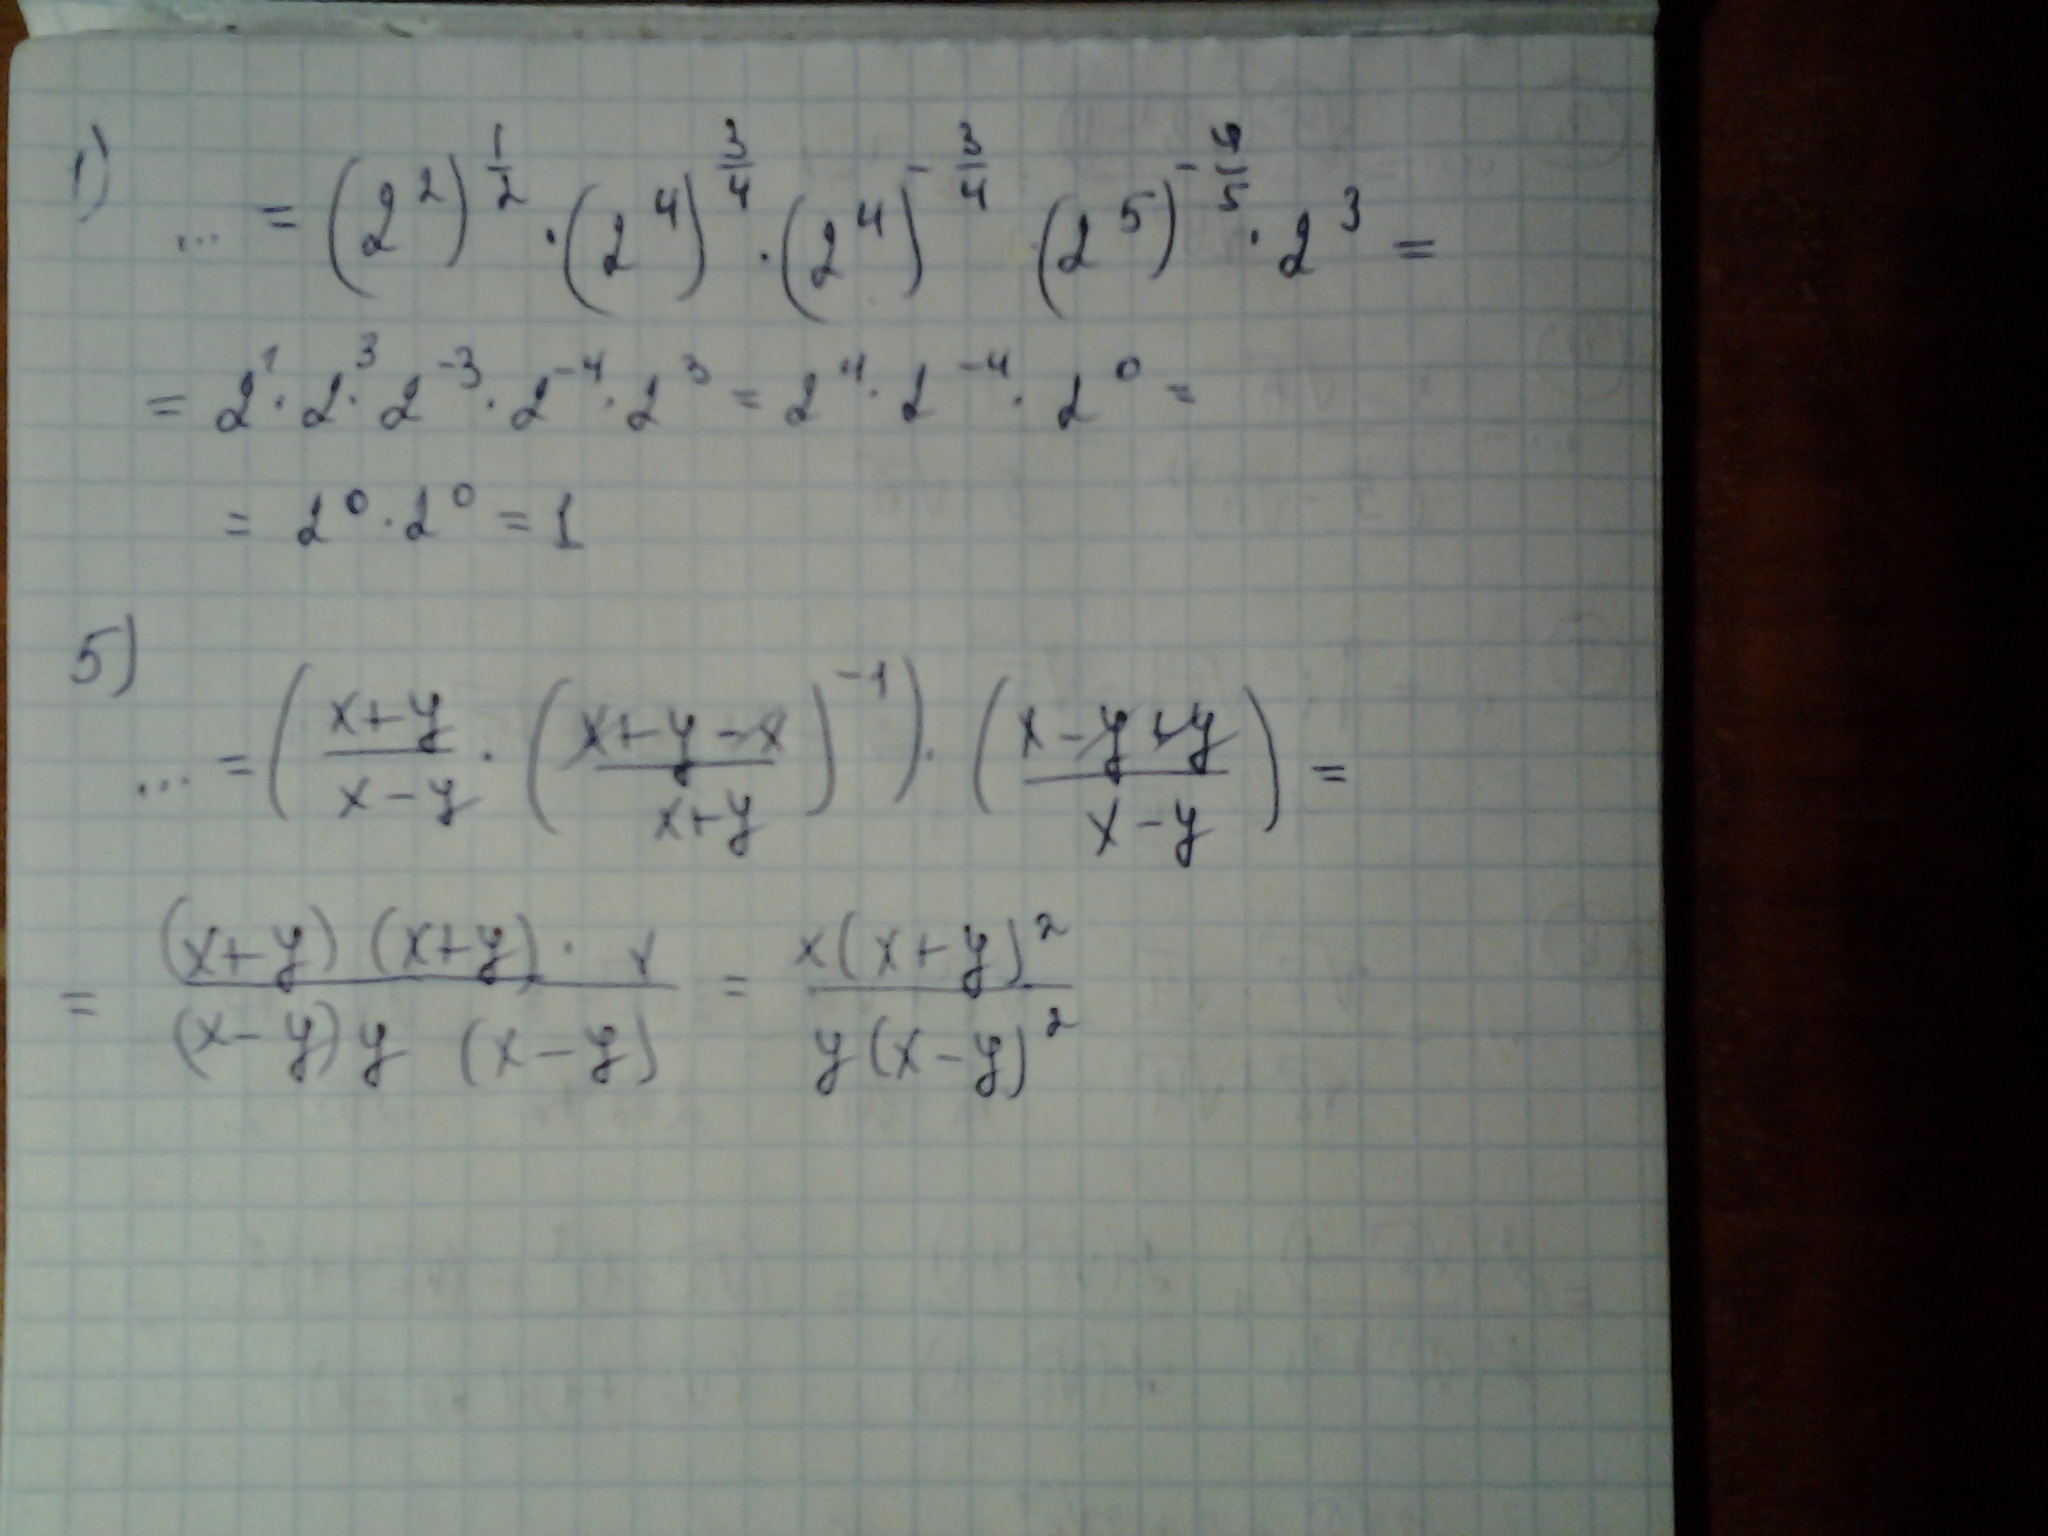 1) ... = (2²)^(1/2) · (2⁴)^(3/4) · (2⁴)^(-3/4) (2⁵)^(-4/5) · 2³ =
= 2¹ · 2³ · 2⁻³ · 2⁻⁴ · 2³ = 2⁴ · 2⁻⁴ · 2⁰ =
= 2⁰ · 2⁰ = 1
5) ... = ((x+y)/(x-y) · ((x+y-x)/(x+y))⁻¹) · ((x-y+y)/(x-y)) =
= ((x+y)(x+y) · x)/((x-y)y(x-y)) = (x(x+y)²)/(y(x-y)²)